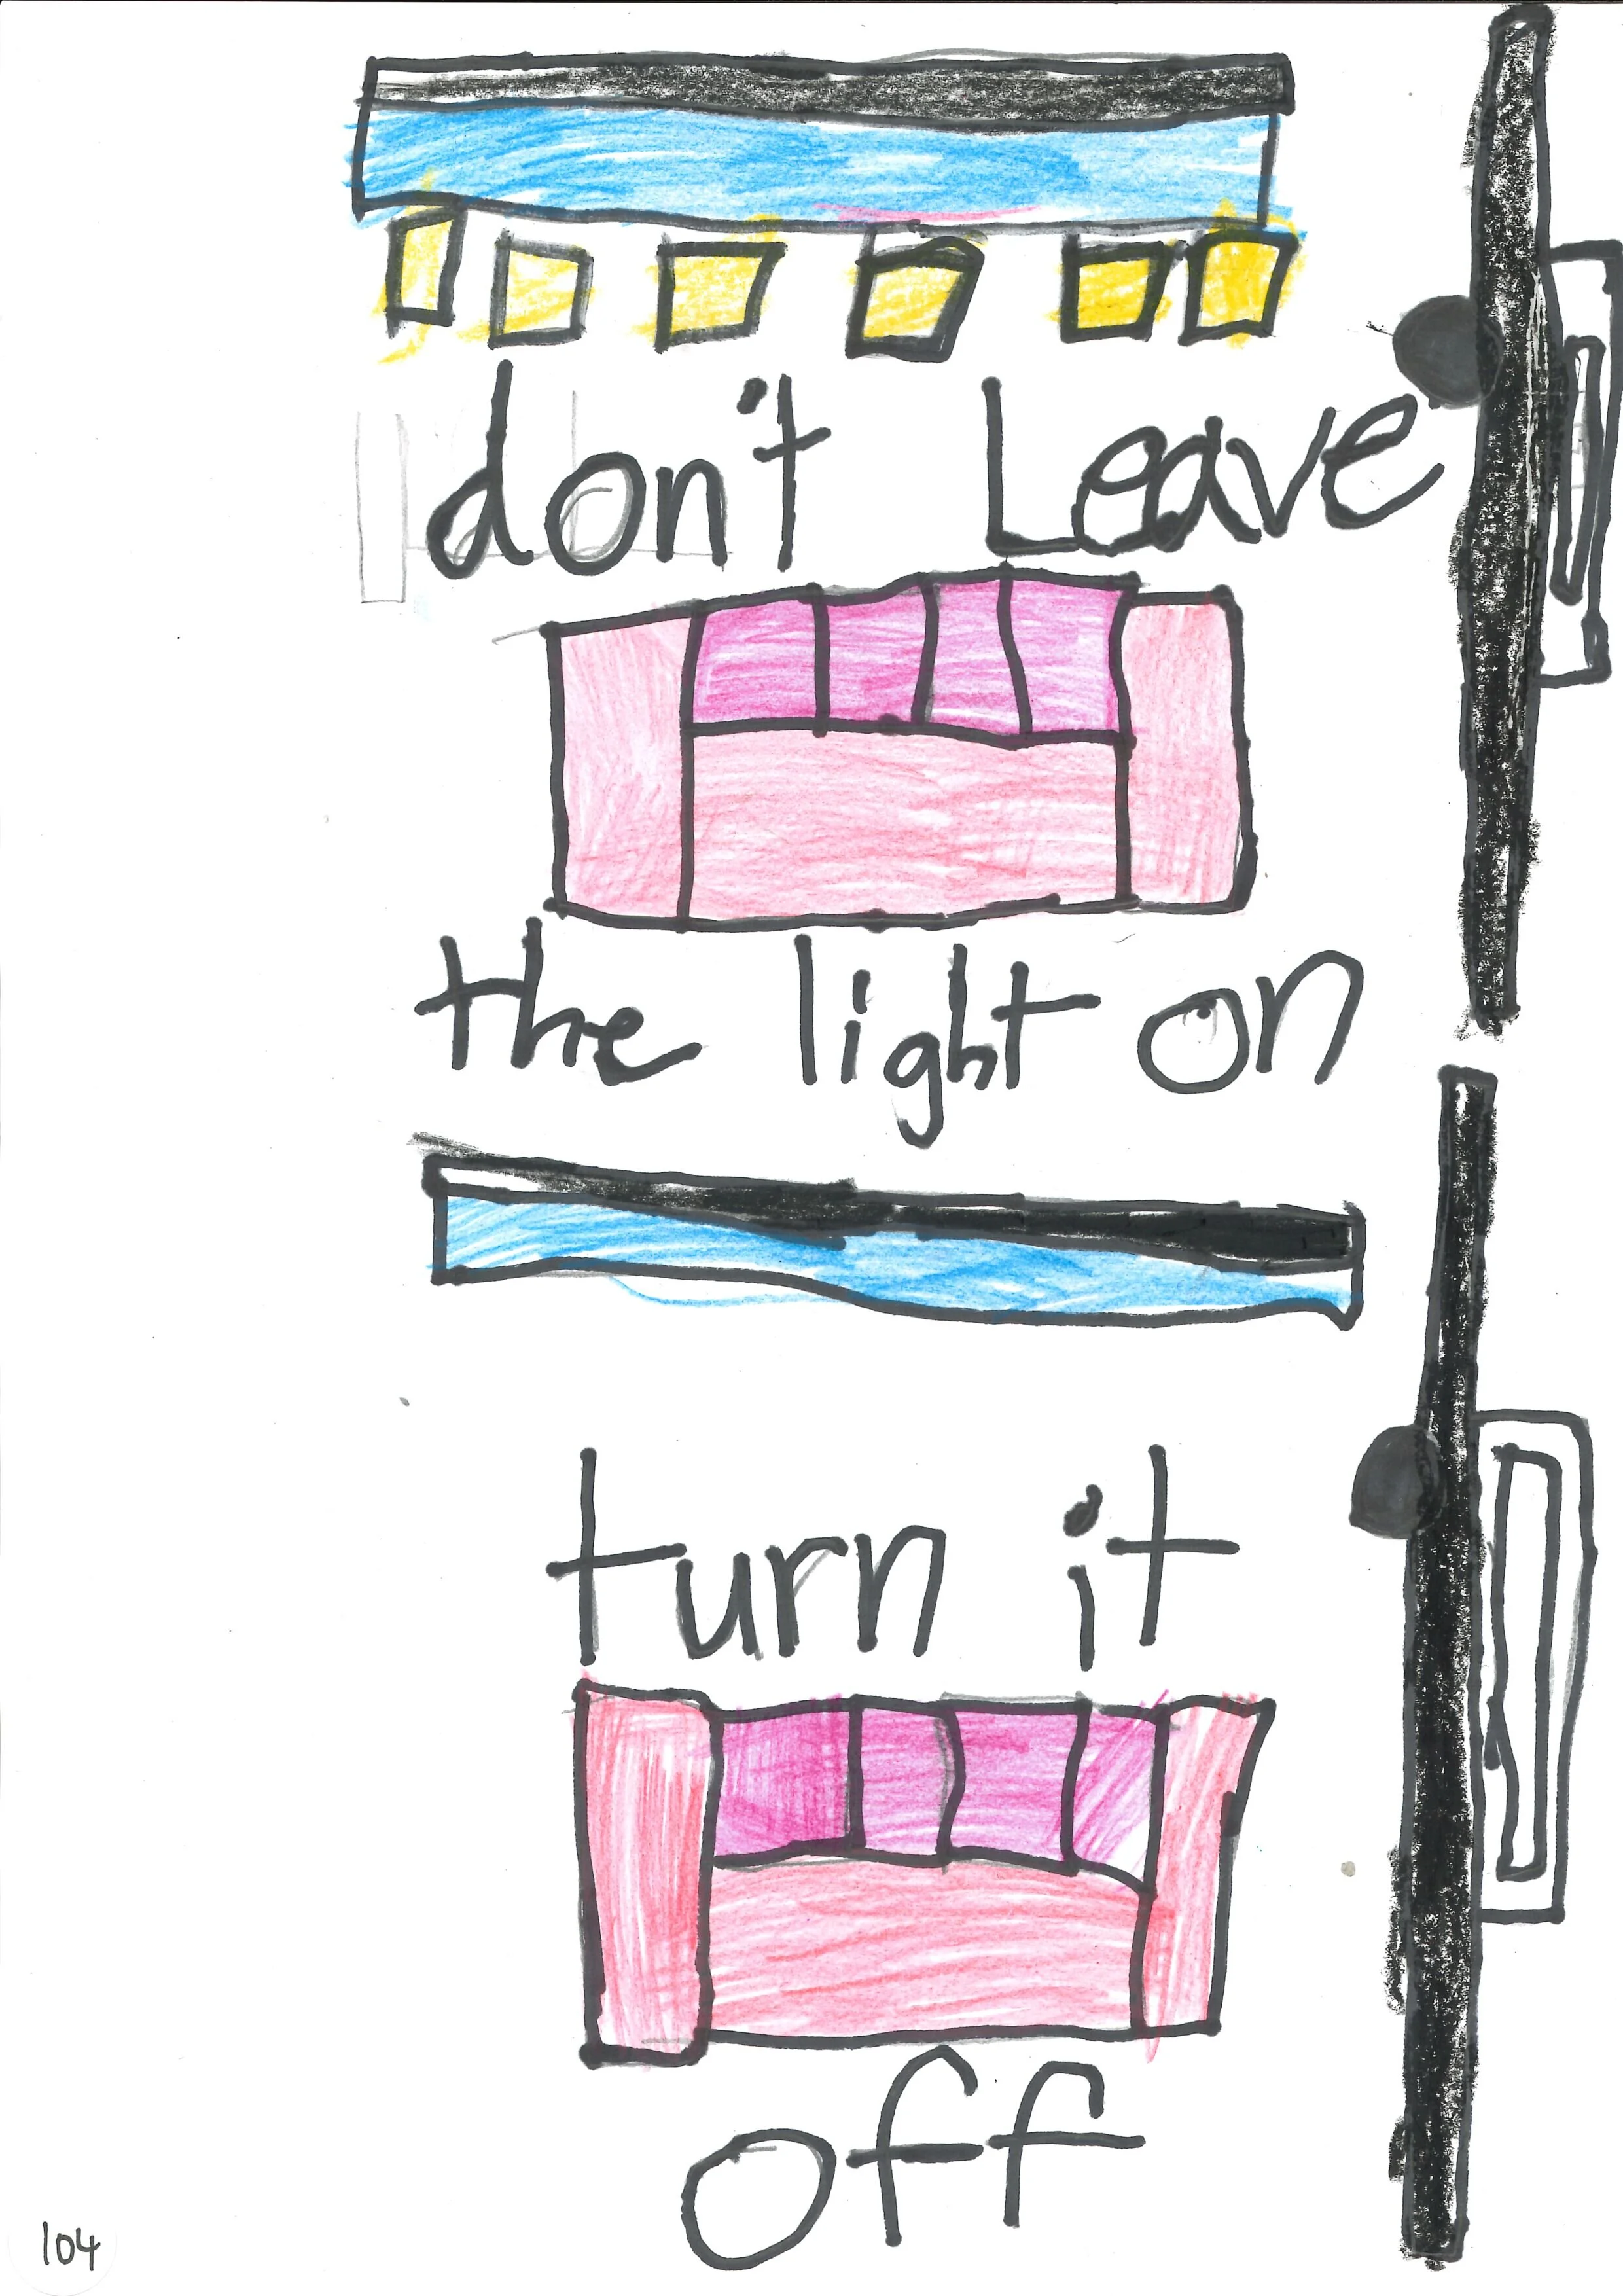 don't Leave
the light on
turn it
off
104